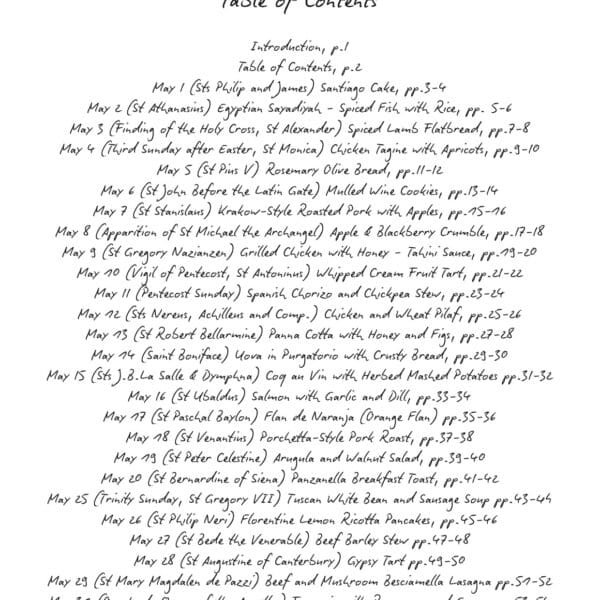 Table of Contents
Introduction, p.1
Table of Contents, p.2
May 1 (Sts Philip and James) Santiago Cake, pp.3-4
May 2 (St Athanasius) Egyptian Sayadiyah - Spiced Fish with Rice, pp. 5-6
May 3 (Finding of the Holy Cross, St Alexander) Spiced Lamb Flatbread, pp.7-8
May 4 (Third Sunday after Easter, St Monica) Chicken Tagine with Apricots, pp.9-10
May 5 (St Pius V) Rosemary Olive Bread, pp.11-12
May 6 (St John Before the Latin Gate) Mulled Wine Cookies, pp.13-14
May 7 (St Stanislaus) Krakow-Style Roasted Pork with Apples, pp.15-16
May 8 (Apparition of St Michael the Archangel) Apple & Blackberry Crumble, pp.17-18
May 9 (St Gregory Nazianzen) Grilled Chicken with Honey - Tahini Sauce, pp.19-20
May 10 (Vigil of Pentecost, St Antoninus) Whipped Cream Fruit Tart, pp.21-22
May 11 (Pentecost Sunday) Spanish Chorizo and Chickpea Stew, pp.23-24
May 12 (Sts Nereus, Achilleus and Comp.) Chicken and Wheat Pilaf, pp.25-26
May 13 (St Robert Bellarmine) Panna Cotta with Honey and Figs, pp.27-28
May 14 (Saint Boniface) Uova in Purgatorio with Crusty Bread, pp.29-30
May 15 (Sts J.B.La Salle & Dymphna) Coq au Vin with Herbed Mashed Potatoes pp.31-32
May 16 (St Ubaldus) Salmon with Garlic and Dill, pp.33-34
May 17 (St Paschal Baylon) Flan de Naranja (Orange Flan) pp.35-36
May 18 (St Venantius) Porchetta-Style Pork Roast, pp.37-38
May 19 (St Peter Celestine) Arugula and Walnut Salad, pp.39-40
May 20 (St Bernardine of Siena) Panzanella Breakfast Toast, pp.41-42
May 25 (Trinity Sunday, St Gregory VII) Tuscan White Bean and Sausage Soup pp.43-44
May 26 (St Philip Neri) Florentine Lemon Ricotta Pancakes, pp.45-46
May 27 (St Bede the Venerable) Beef Barley Stew pp.47-48
May 28 (St Augustine of Canterbury) Gypsy Tart pp.49-50
May 29 (St Mary Magdalen de Pazzi) Beef and Mushroom Besciamella Lasagna pp.51-52